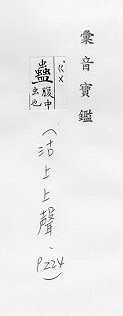 彙音寶鑑
ㄍㄨ
蠱
腹中
虫也
(沽上上聲、P224)